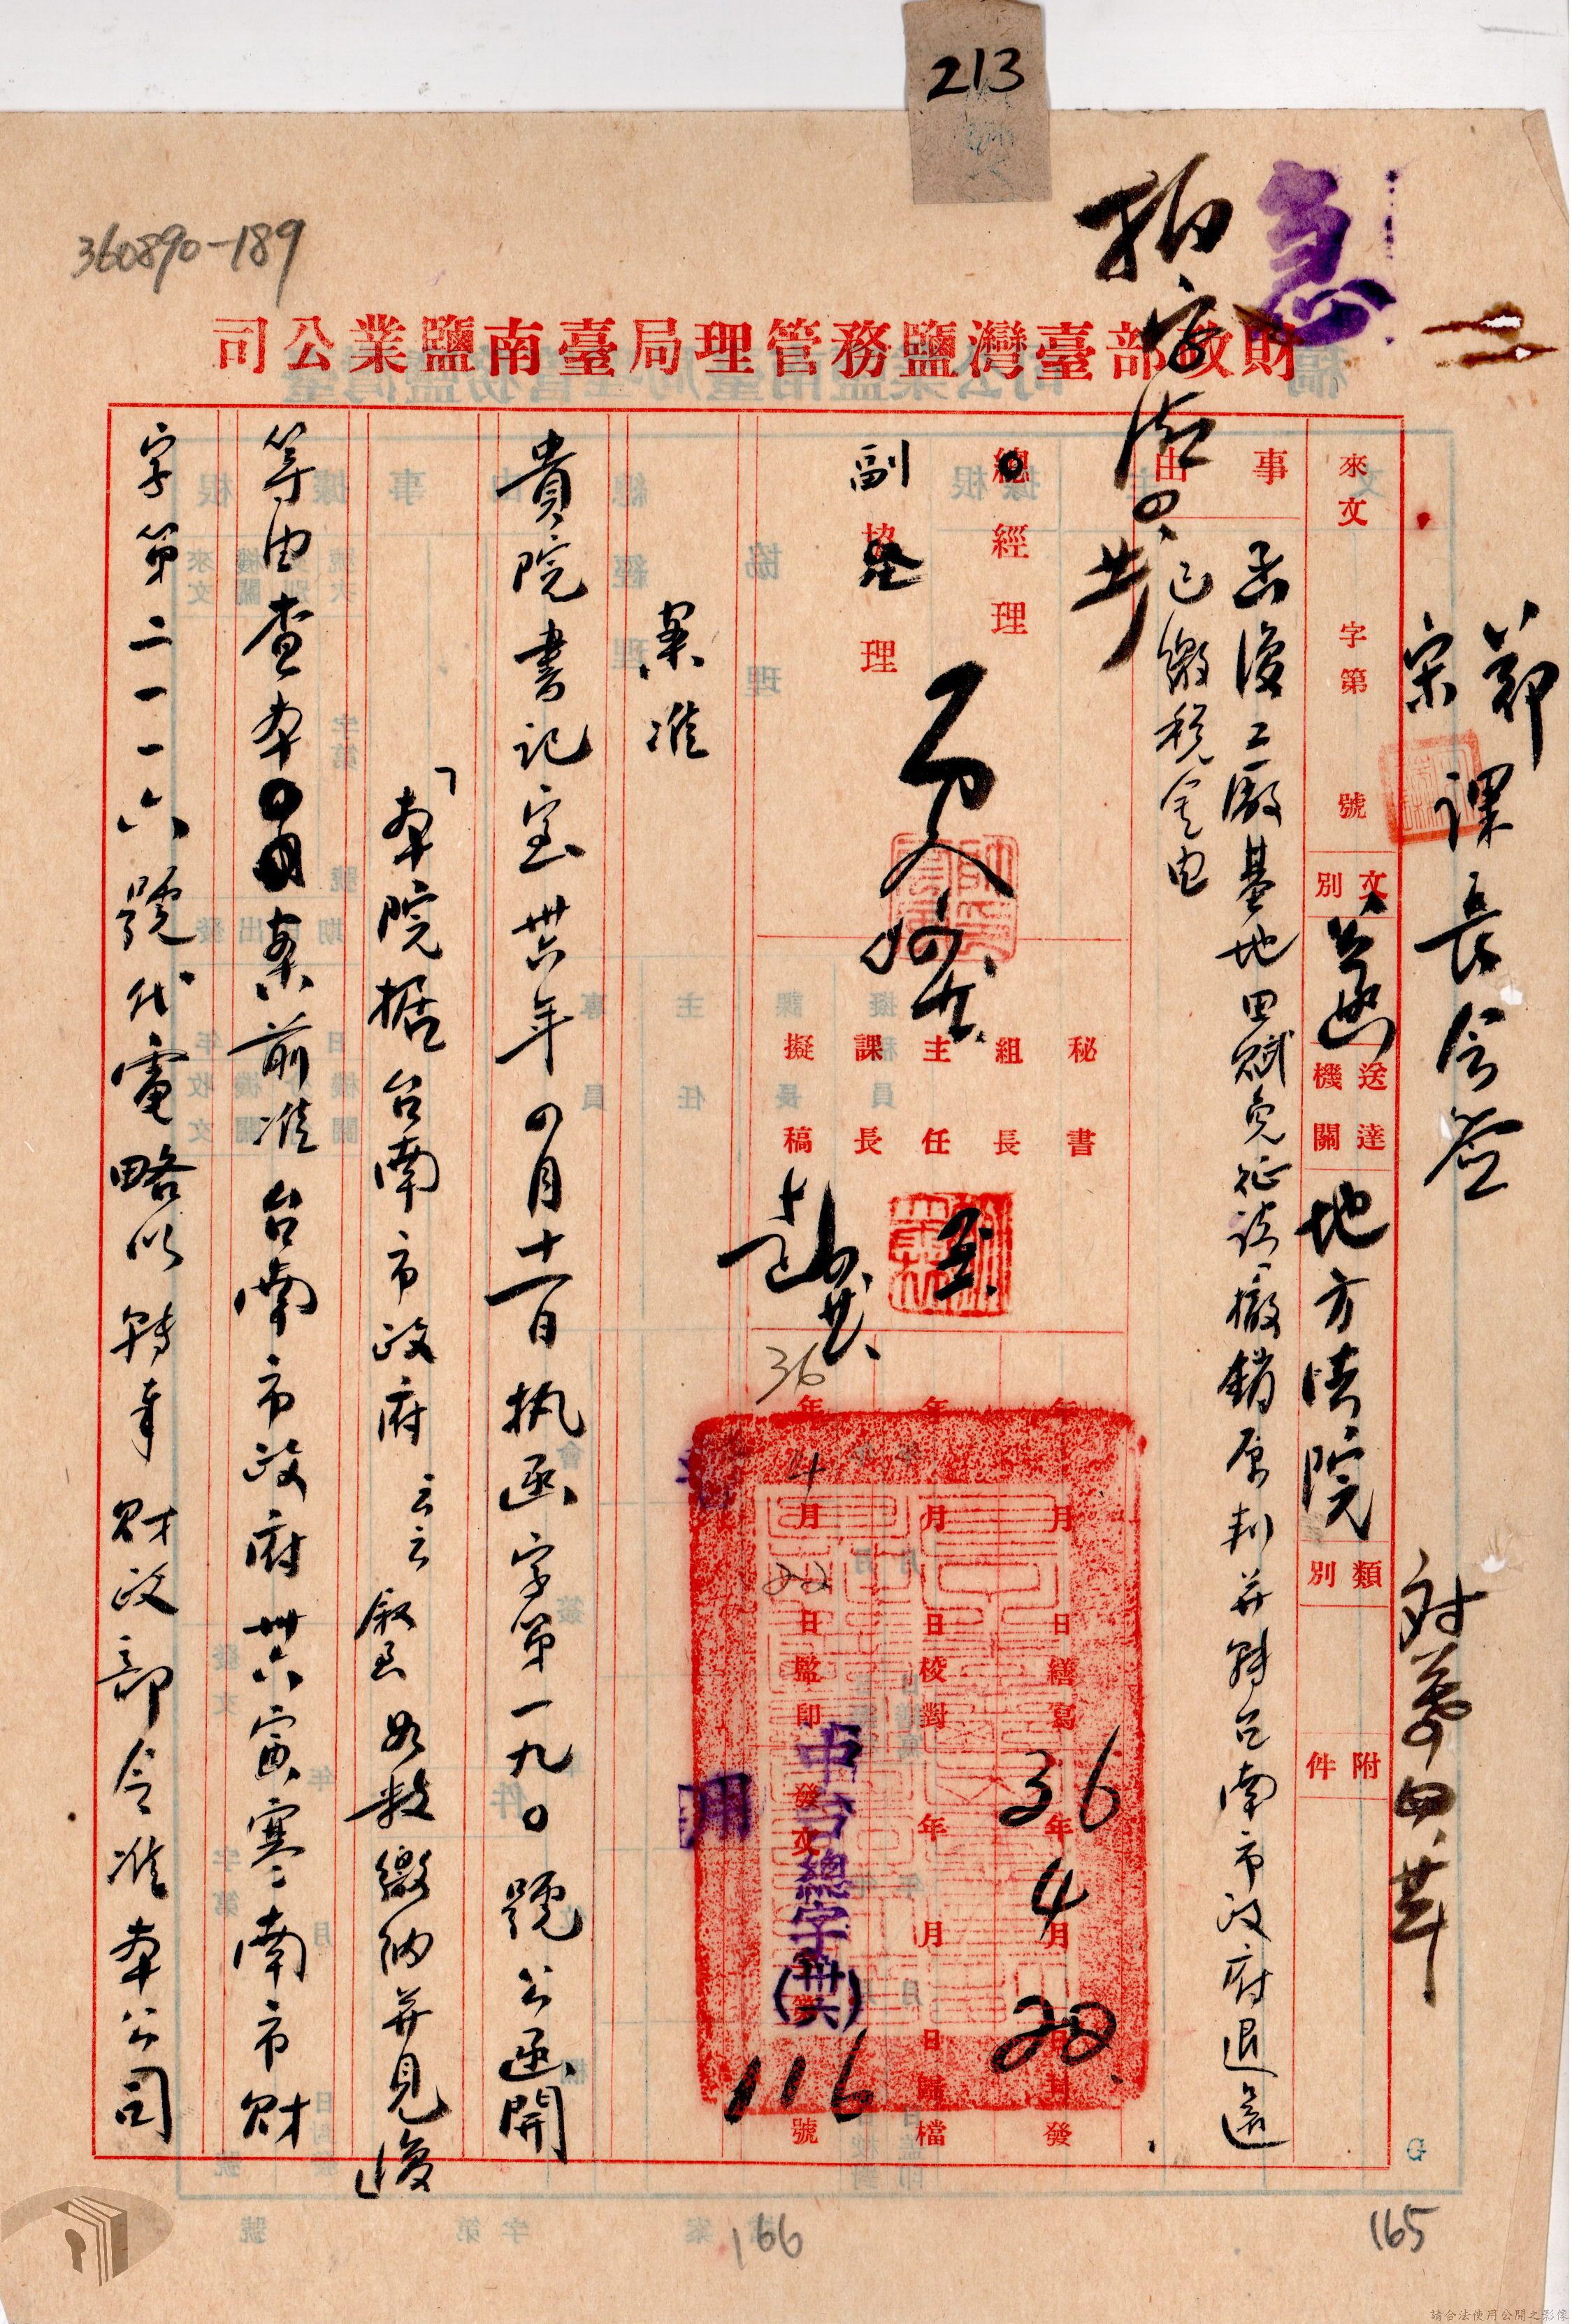 213
360890-189
急
財政部臺灣鹽務管理局臺南鹽業公司
鄭
宋
課長會簽
來文 字第 號
文別 公函
送達機關 地方法院
類別
附件
事由
函復工廠基地田賦免征請撤銷原判并轉台南市政府退還
已繳稅金由
總經理
副
協理
秘書
組長
主任
課長
擬稿
36年4月22日監印
年 月 日校對
年 月 日繕寫
36年4月23日封發
年 月 日歸檔
中台總字(卅六)
發文
116號
案准
貴院書記室卅六年四月十一日执函字第一九〇號公函開
「本院据台南市政府云云叙至如数繳纳并見復」
等由查本案前准台南市政府卅六寅寒南市財
字第二一一六號代電略以轉奉財政部令准本公司
166
165
G
請合法使用公開之影像